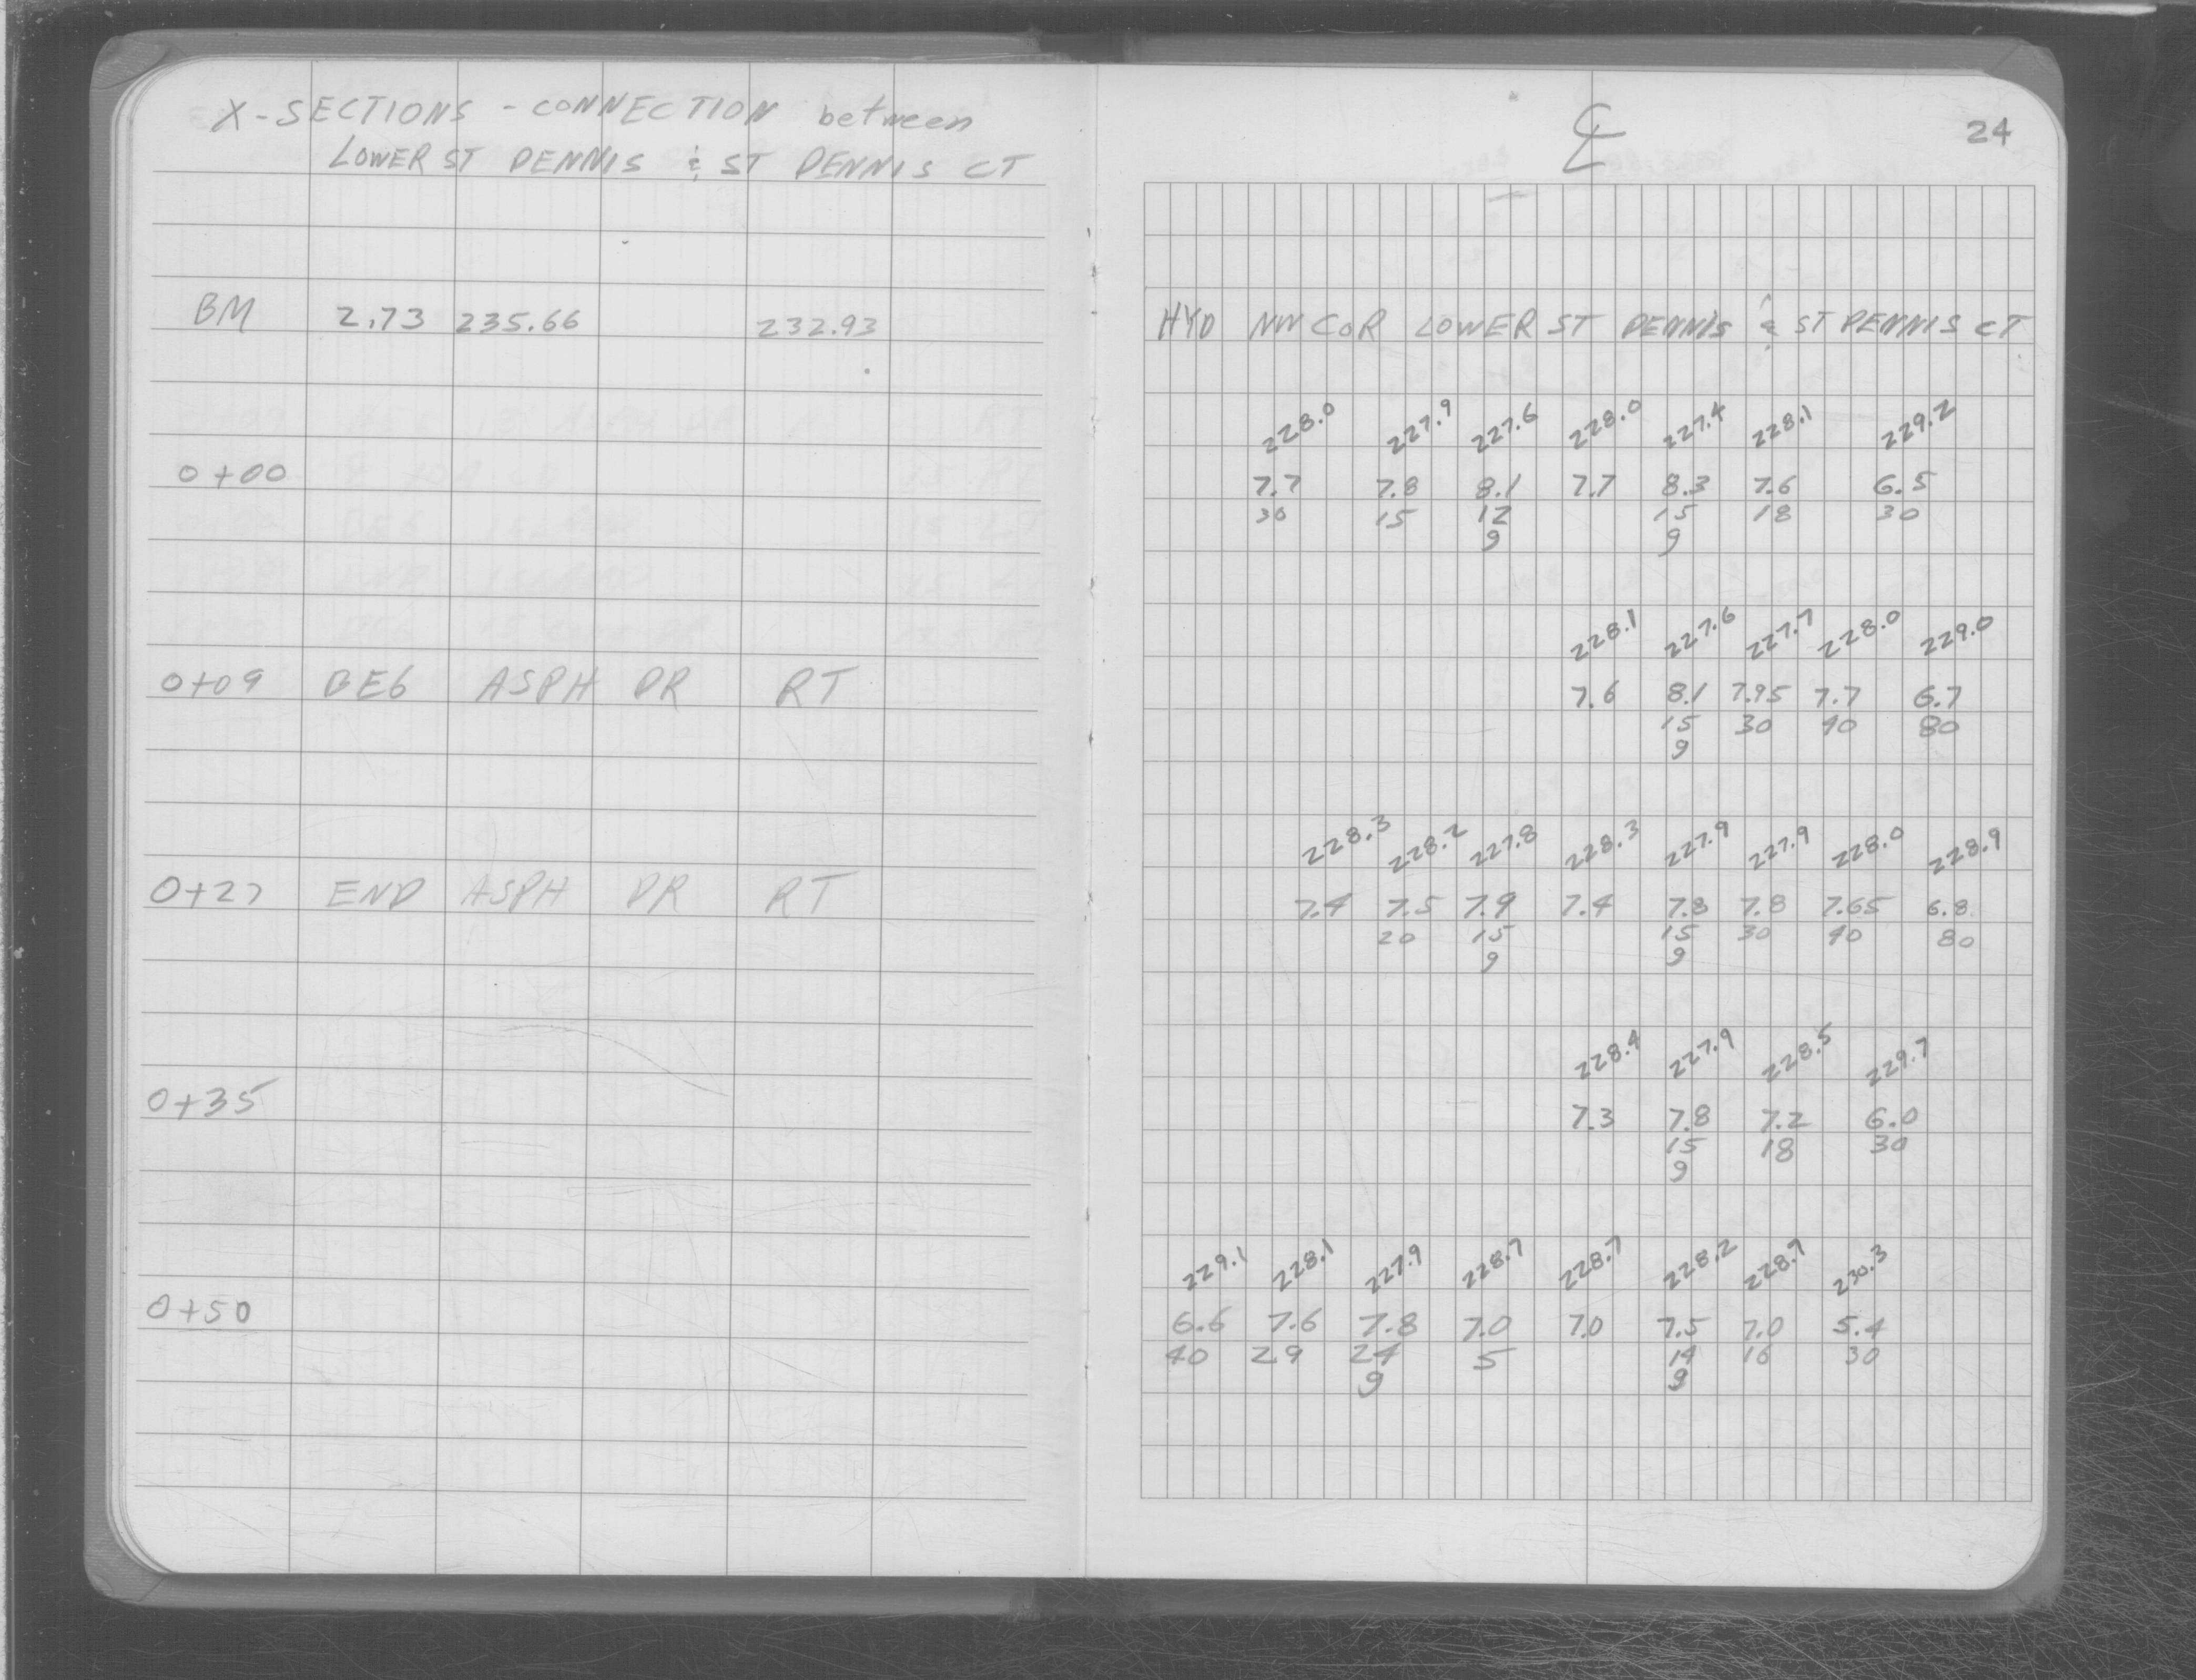 X-SECTIONS - CONNECTION between
LOWER ST DENNIS & ST DENNIS CT
BM 2.73 235.66 232.93
0+00
0+09 BEG ASPH DR RT
0+27 END ASPH DR RT
0+35
0+50
℄ 24
HYD NW COR LOWER ST DENNIS & ST DENNIS CT
228.0 227.9 227.6 228.0 227.4 228.1 229.2
7.7 7.8 8.1 7.7 8.3 7.6 6.5
30 15 12 15 18 30
9 9
228.1 227.6 227.7 228.0 229.0
7.6 8.1 7.95 7.7 6.7
15 30 40 80
9
228.3 228.2 227.8 228.3 227.9 227.9 228.0 228.9
7.4 7.5 7.9 7.4 7.8 7.8 7.65 6.8
20 15 15 30 40 80
9 9
228.4 227.9 228.5 229.7
7.3 7.8 7.2 6.0
15 18 30
9
229.1 228.1 227.9 228.7 228.7 228.2 228.7 230.3
6.6 7.6 7.8 7.0 7.0 7.5 7.0 5.4
40 29 24 5 14 16 30
9 9